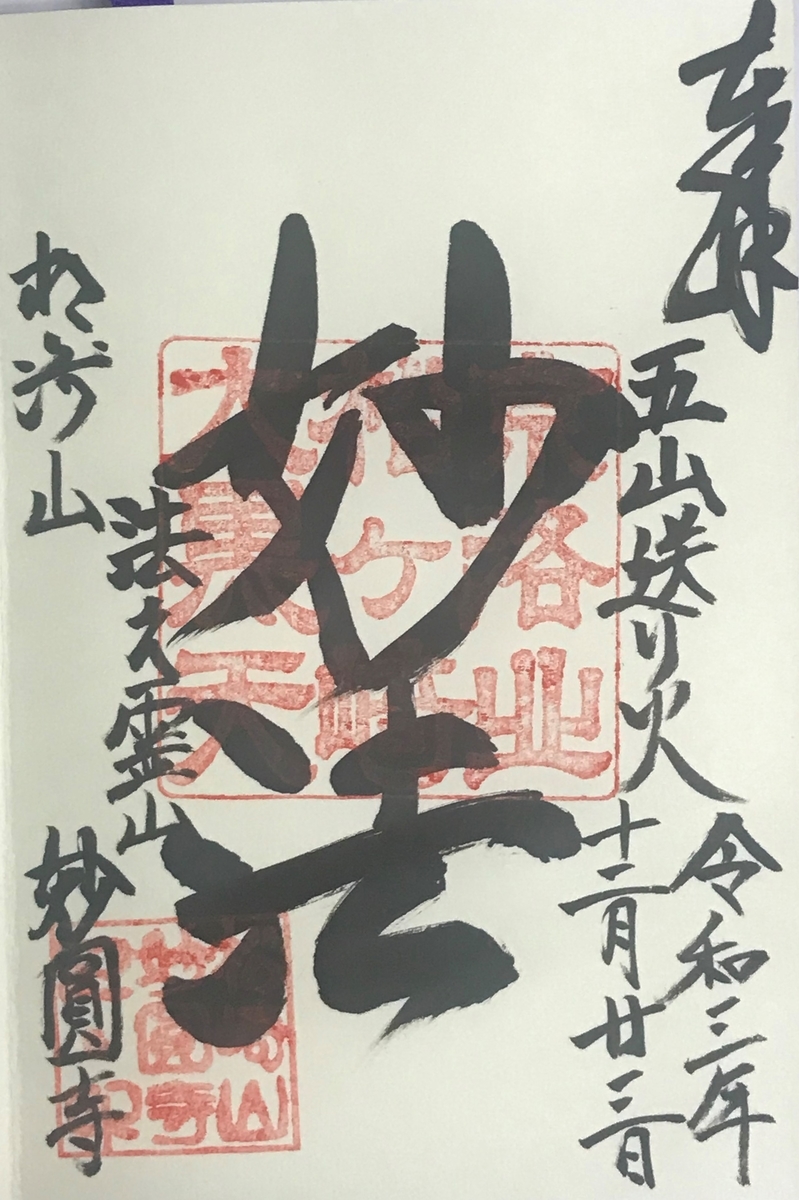 奉拝
五山送り火
令和三年
十二月廿三日
妙法
京洛北
松ヶ崎
大黒天
法之霊山
松崎山
妙圓寺